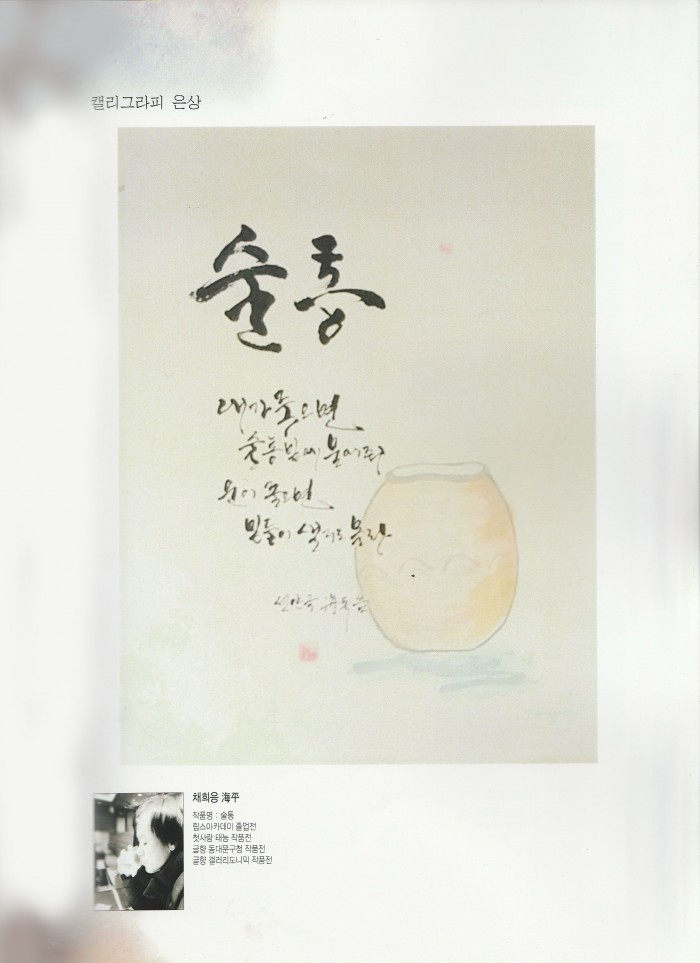 캘리그라피 은상
술통
내가 죽으면
술통 밑에 묻어줘
운이 좋으면
밑둥이 샐지도 몰라
채희웅 海平
작품명 : 술통
림스아카데미 졸업전
첫사랑 태능 작품전
글향 동대문구청 작품전
글향 갤러리도니믹 작품전